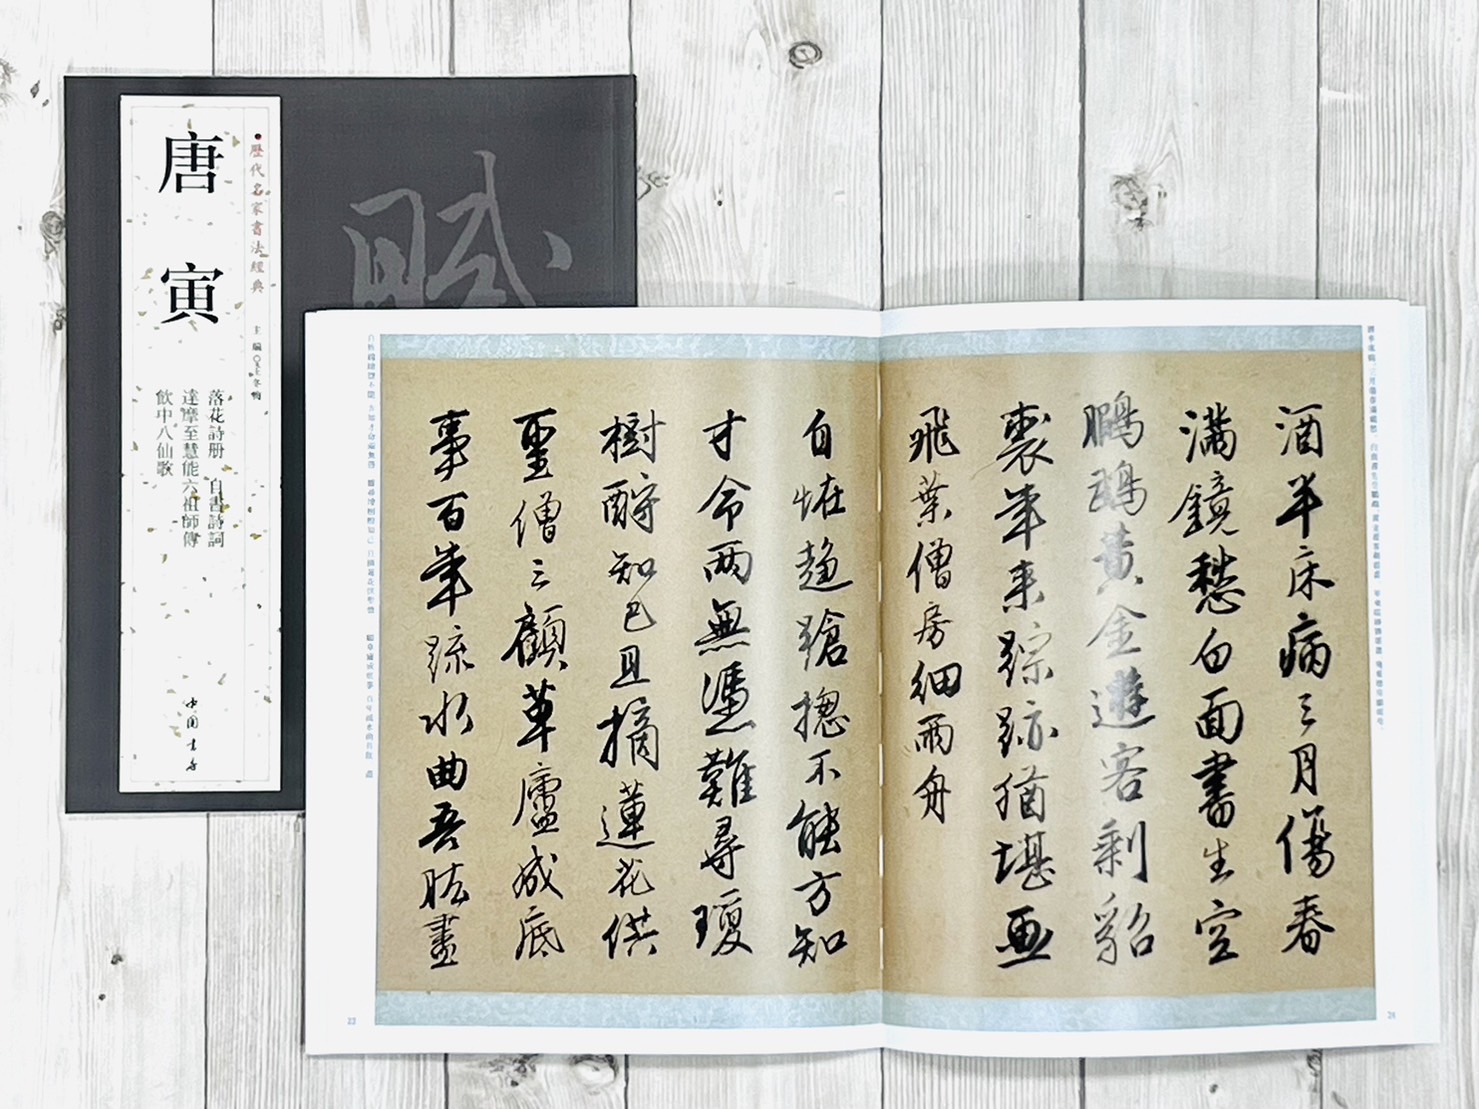 唐寅
歷代名家書法經典
主編 王冬梅
落花詩册 自書詩詞
達摩至慧能六祖師傳
飲中八仙歌
中国书店
酒半床病三月傷春
滿鏡愁白面書生空
鵬鶚黄金遊客剩貂
裘年来踪跡猶堪画
飛葉僧房細雨舟
自怪趋蹌揔不能方知
才命两無憑難尋瓊
樹酹知己且摘蓮花供
聖僧三顧草廬成底
事百年疏水曲吾肱畫
23
24